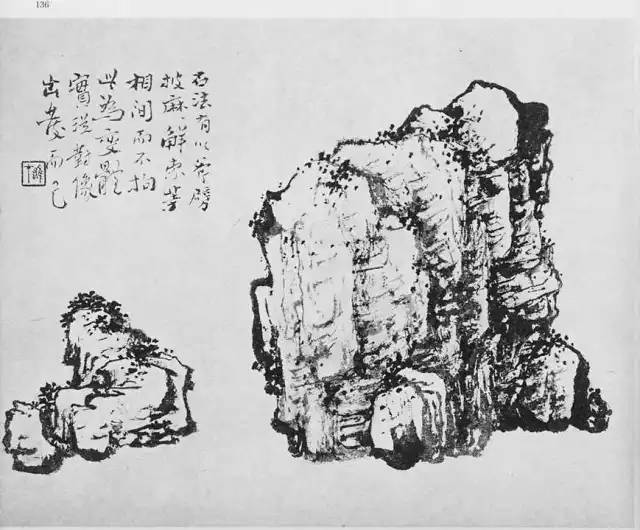 136
石法有以斧劈
披麻、解索等
相間而不拘
此為變體
實從對像
出發而已